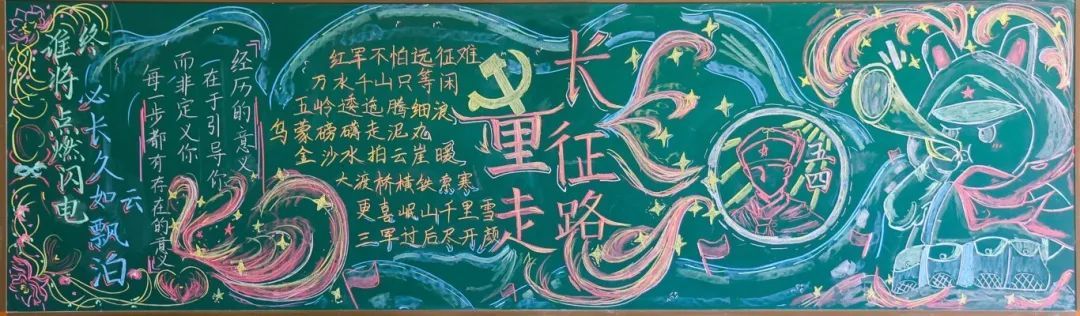 谁终将点燃闪电
必长久如云飘泊
「经历的意义
在于引导你
而非定义你
每一步都有存在的意义」
红军不怕远征难
万水千山只等闲
五岭逶迤腾细浪
乌蒙磅礴走泥丸
金沙水拍云崖暖
大渡桥横铁索寒
更喜岷山千里雪
三军过后尽开颜
重走
长征路
五四